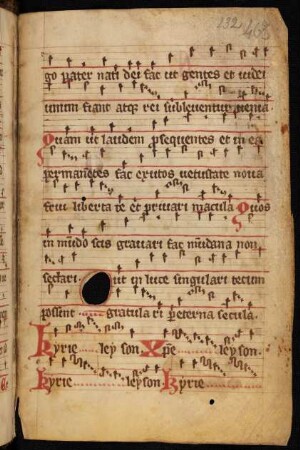 132 468
go pater nati dei fac ut gentes et iudei
unum fiant atq rei subleventur
Quam ut laudem psequentes et in ea
permanētes fac exutos vetustate nova
frui liberta te et privari macula Quos
in mūdo scis gravari fac mūdana non
sectari ut in luce singulari tecum
possint gratula ri p eterna secula
Kyrie leyson Xpe leyson
Kyrie leyson Kyrie